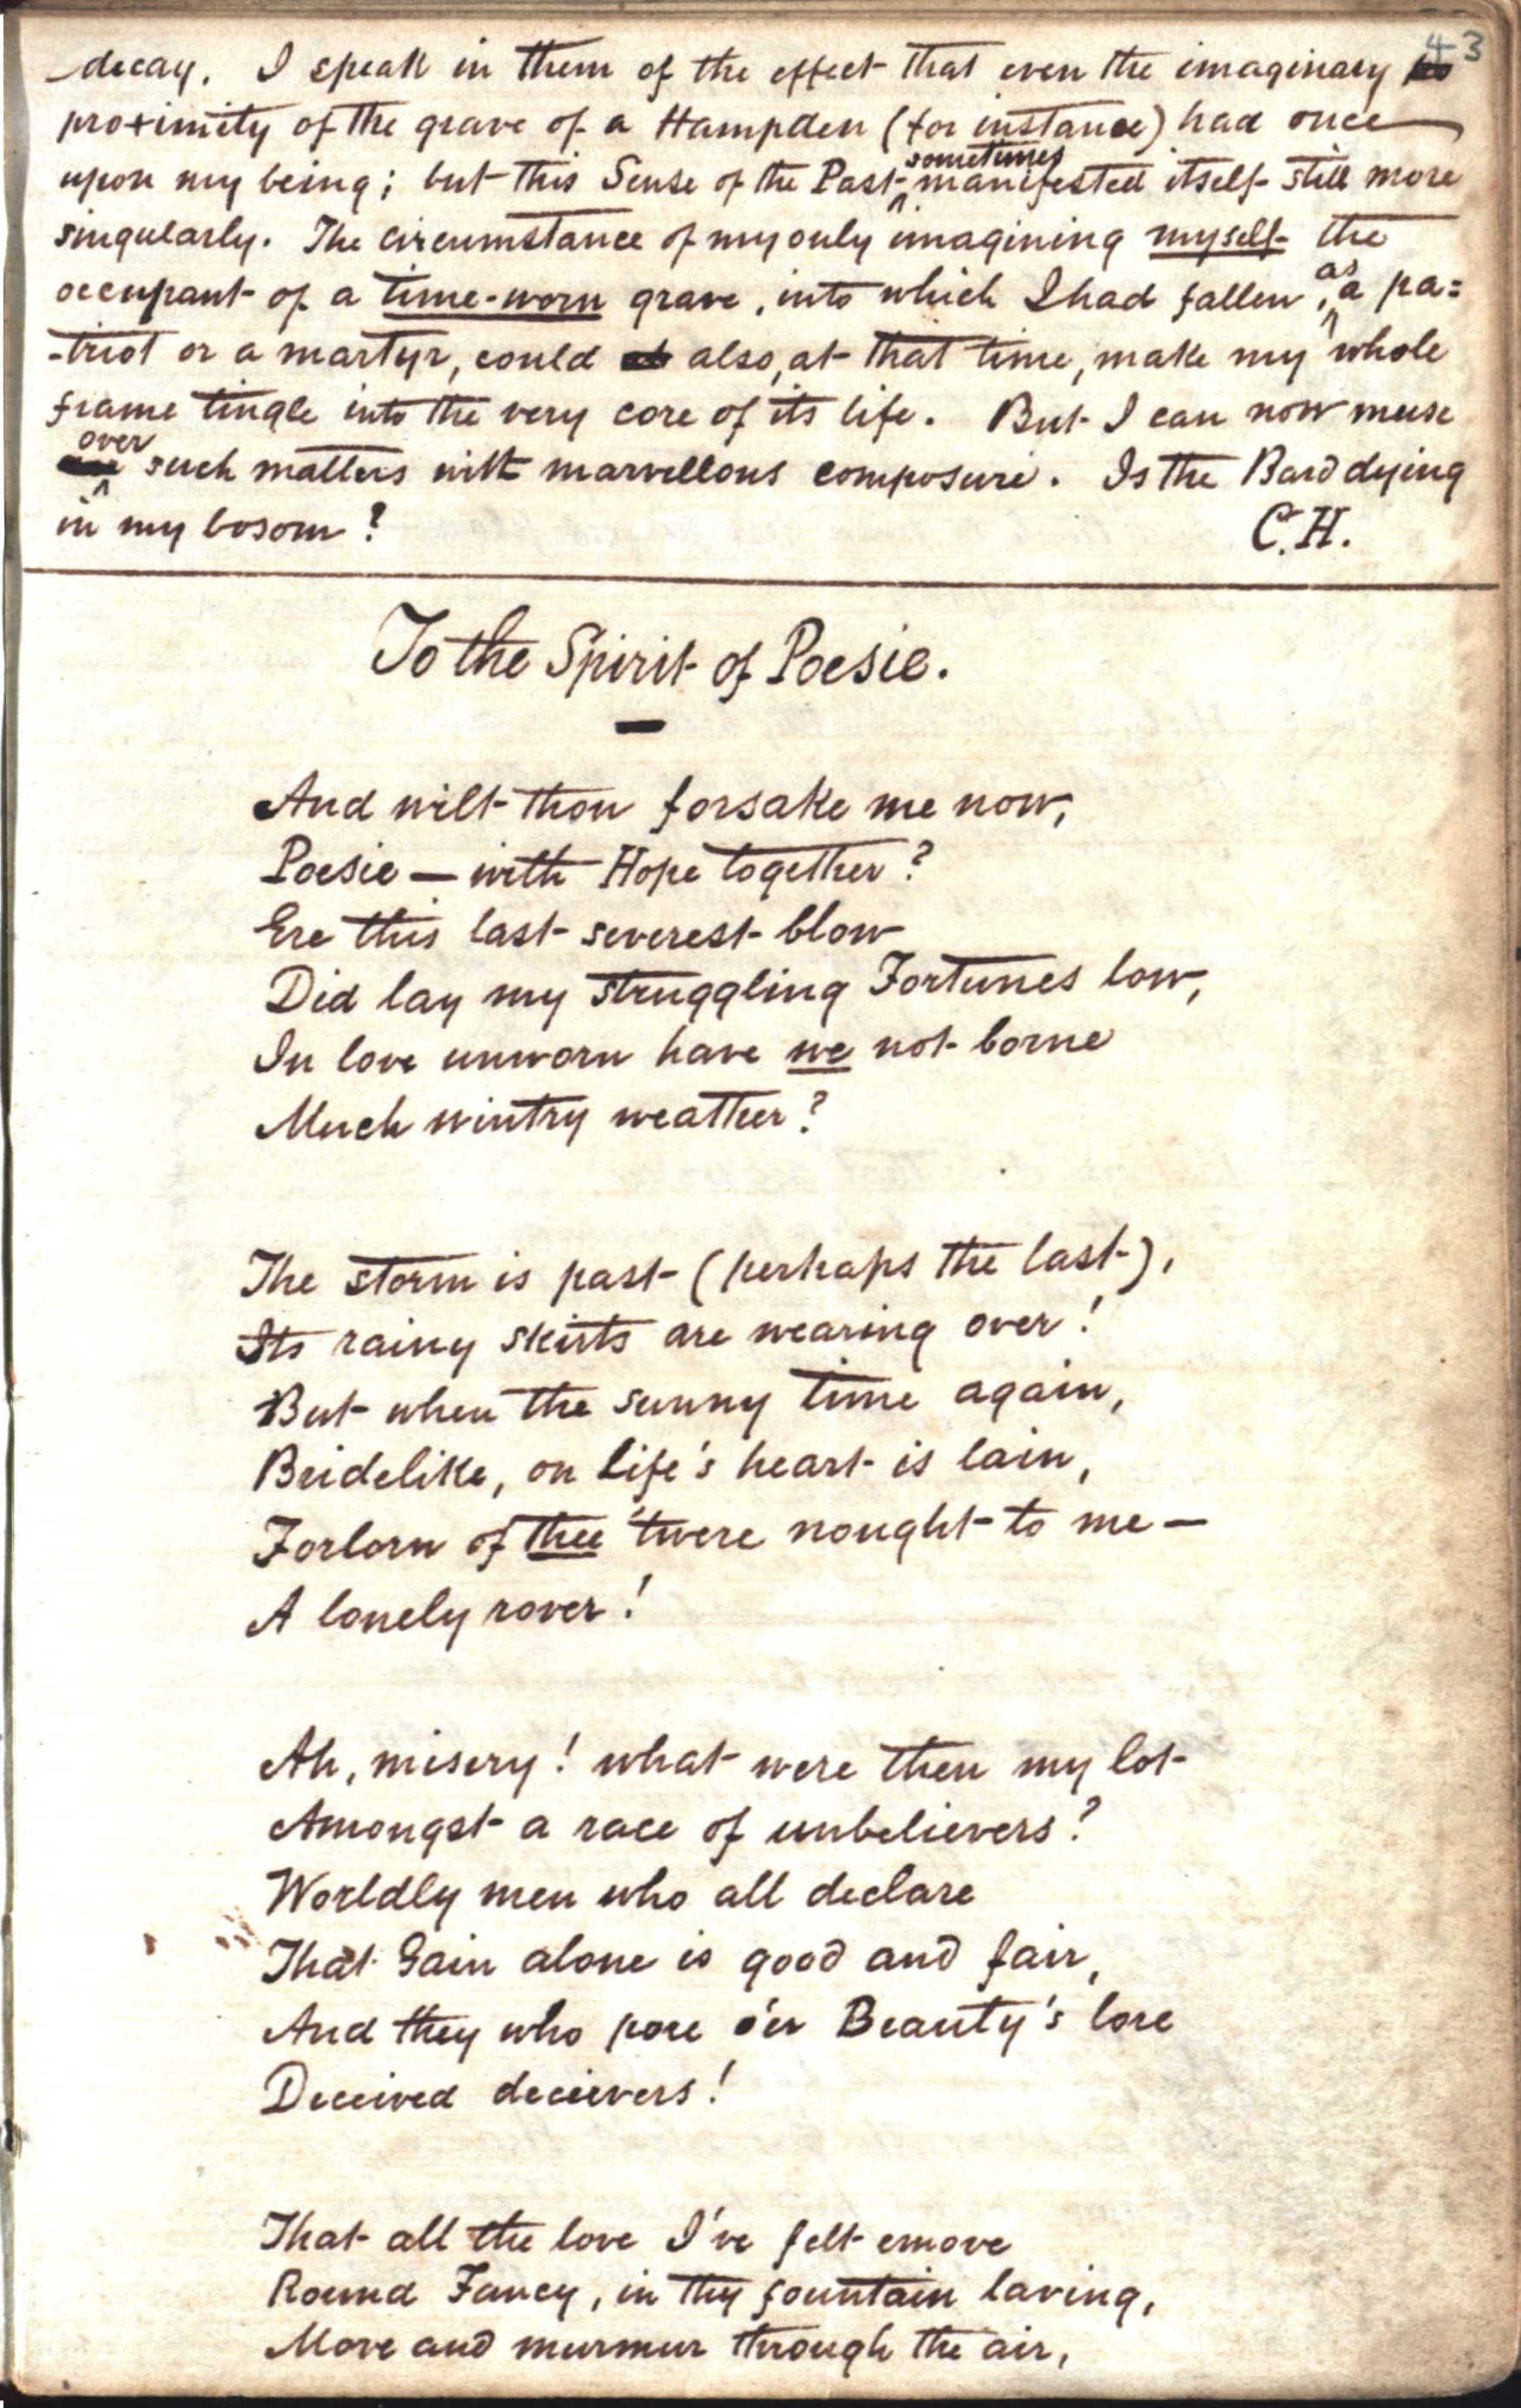 43
decay. I speak in them of the effect that even the imaginary
proximity of the grave of a Hampden (for instance) had once
upon my being; but this Sense of the Past sometimes manifested itself still more
singularly. The circumstance of my only imagining myself the
occupant of a time-worn grave, into which I had fallen, as a pa=
-triot or a martyr, could also, at that time, make my whole
frame tingle into the very core of its life. But I can now muse
over such matters with marvellous composure. Is the Bard dying
in my bosom?
C.H.
To the Spirit of Poesie.
And wilt thou forsake me now,
Poesie — with Hope together?
Ere this last severest blow
Did lay my struggling Fortunes low,
In love unworn have we not borne
Much wintry weather?
The storm is past (perhaps the last),
Its rainy skirts are wearing over!
But when the sunny time again,
Bridelike, on Life's heart is lain,
Forlorn of thee 'twere nought to me —
A lonely rover!
Ah, misery! what were then my lot
Amongst a race of unbelievers?
Worldly men who all declare
That Gain alone is good and fair,
And they who pore o'er Beauty's lore
Deceived deceivers!
That all the love I've felt emove
Round Fancy, in thy fountain laving,
Move and murmur through the air,